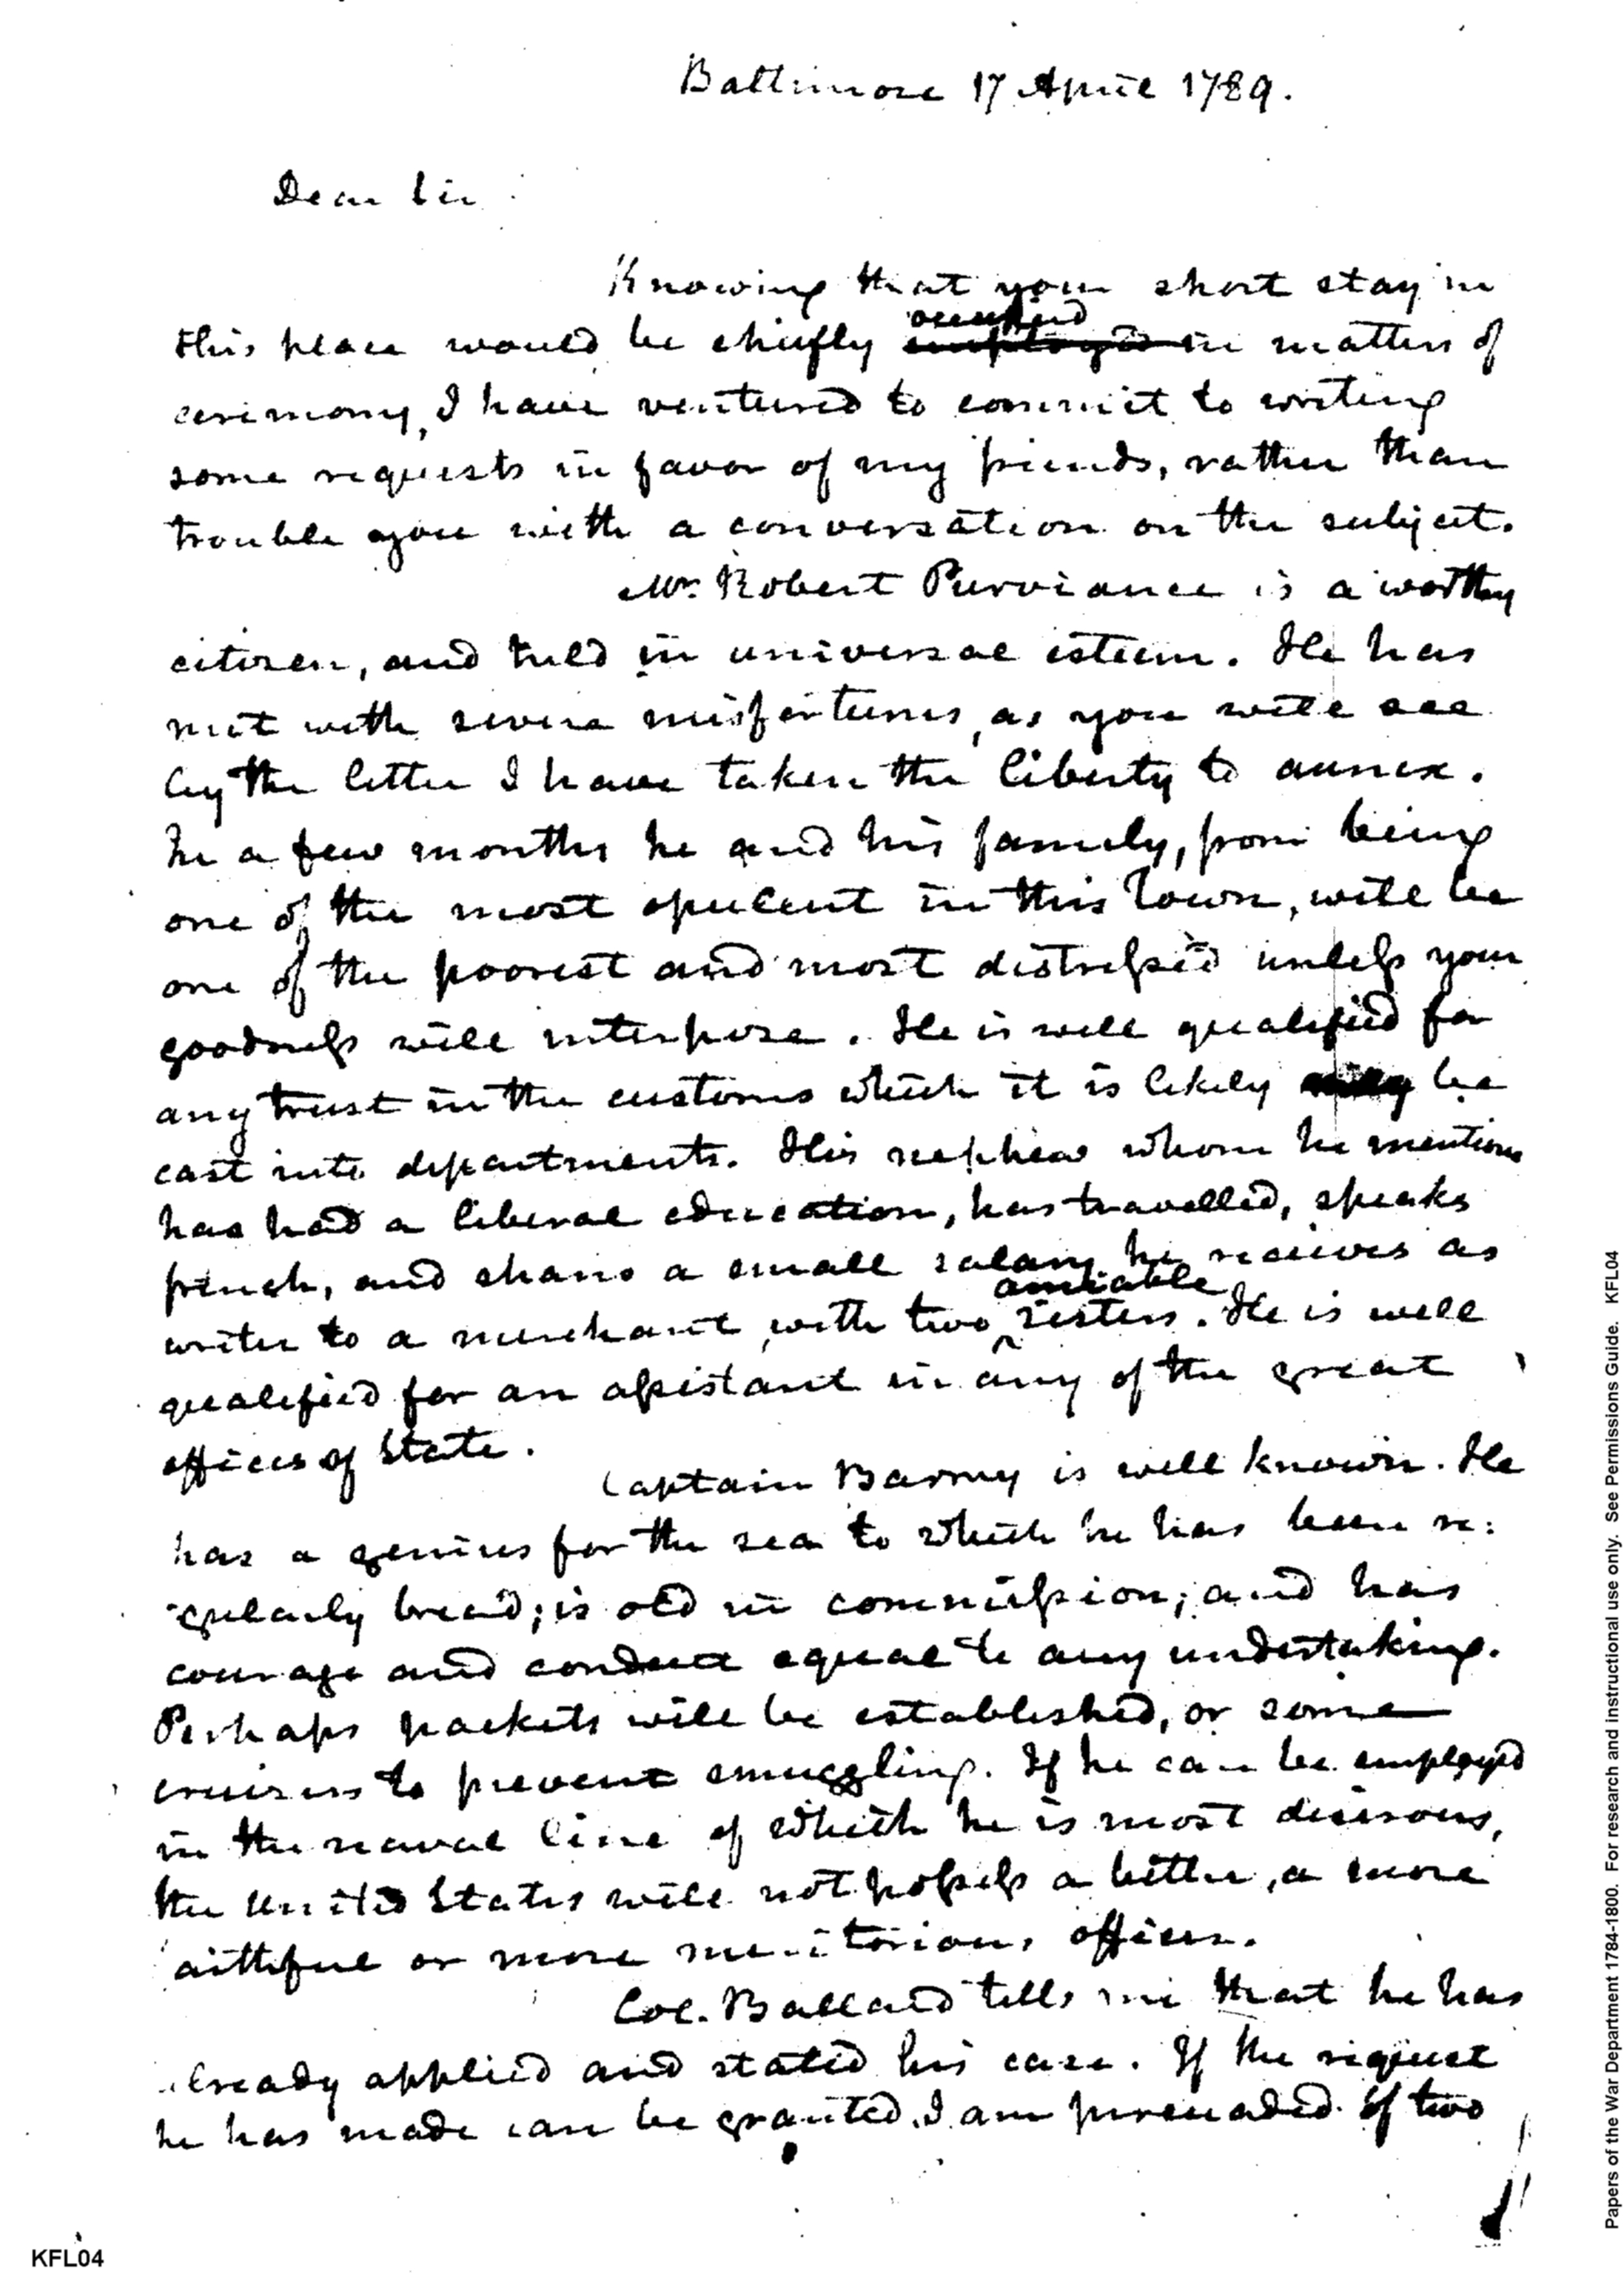 Baltimore 17 April 1789.
Dear Sir
Knowing that your short stay in
this place would be chiefly occupied employed in matters of
ceremony, I have ventured to commit to writing
some requests in favor of my friends, rather than
trouble you with a conversation on the subject.
Mr. Robert Purviance is a worthy
citizen, and held in universal esteem. He has
met with severe misfortunes, as you will see
by the letter I have taken the liberty to annex.
In a few months he and his family, from being
one of the most opulent in this Town, will be
one of the poorest and most distressed unless your
goodness will interpose. He is well qualified for
any trust in the customs which it is likely be
cast into departments. His nephew whom he mentions
has had a liberal education, has travelled, speaks
french, and shares a small salary he receives as
writer to a merchant, with two amiable sisters. He is well
qualified for an assistant in any of the great
offices of State.
Captain Barney is well known. He
has a genius for the sea to which he has been re:
gularly bread; is old in commission; and has
courage and conduct equal to any undertaking.
Perhaps packets will be established, or some
cruizers to prevent smuggling. If he can be employed
in the naval line of which he is most desirous,
the United States will not possess a better, a more
aithful or more meritorious officer.
Col. Ballard tells me that he has
already applied and stated his case. If the request
he has made can be granted, I am persuaded if two
KFL04
Papers of the War Department 1784-1800. For research and instructional use only. See Permissions Guide. KFL04